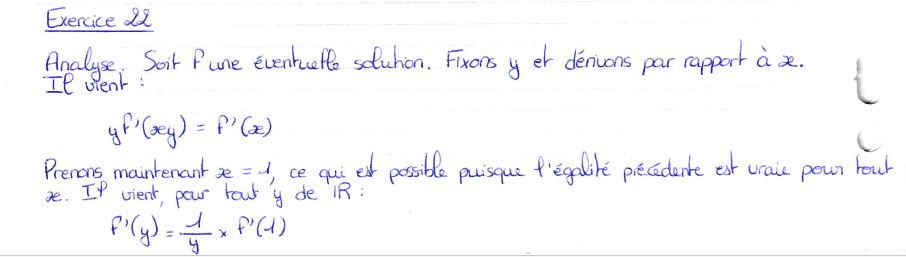 Exercice 22
Analyse. Soit f une éventuelle solution. Fixons y et dérivons par rapport à x.
Il vient :
yf'(xy) = f'(x)
Prenons maintenant x = 1, ce qui est possible puisque l'égalité précédente est vraie pour tout
x. Il vient, pour tout y de ℝ :
f'(y) = 1/y × f'(1)